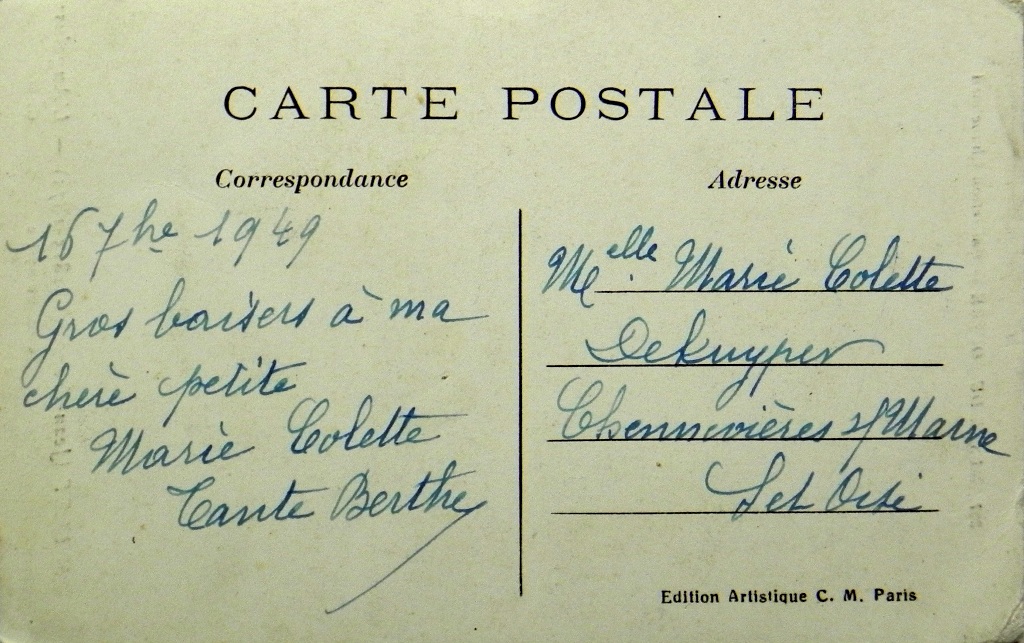 CARTE POSTALE
Correspondance
16 7bre 1949
Gros baisers à ma
chère petite
Marie Colette
Tante Berthe
Adresse
Melle Marie Colette
DeKuyper
Chennevières s/Marne
S et Oise
Edition Artistique C. M. Paris